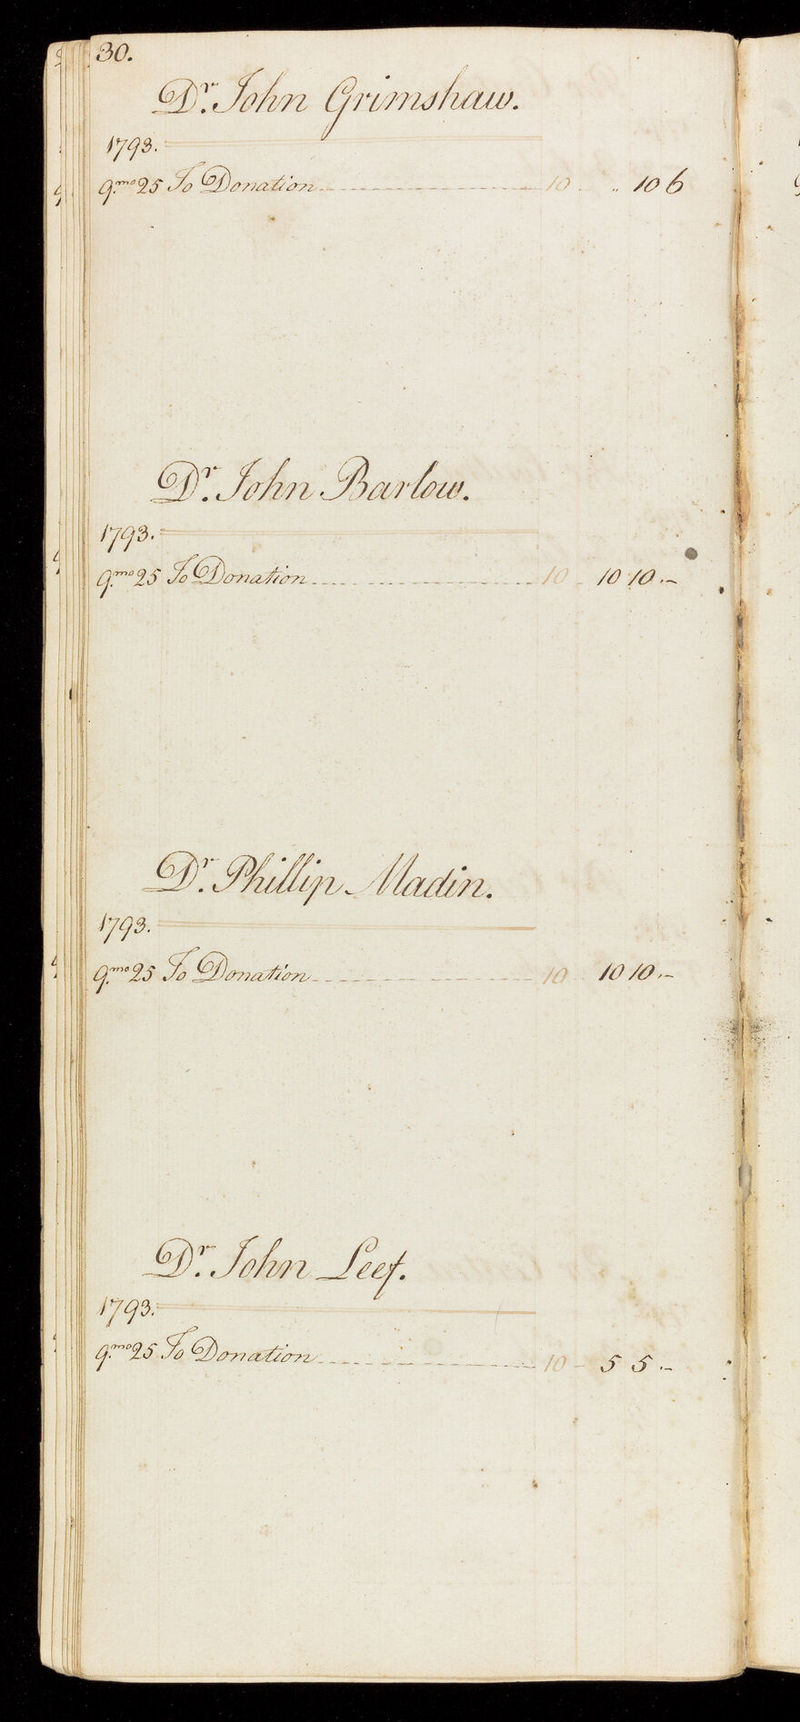 30.
Dr. John Grimshaw.
1793.
9.mo 25 To Donation 10 .. 10 6
Dr. John Barlow.
1793.
9.mo 25 To Donation 10 10 10 .-
Dr. Phillip Madin.
1793.
9.mo 25 To Donation 10 10 10 .-
Dr. John Leef.
1793.
9.mo 25 To Donation 10 5 5 .-